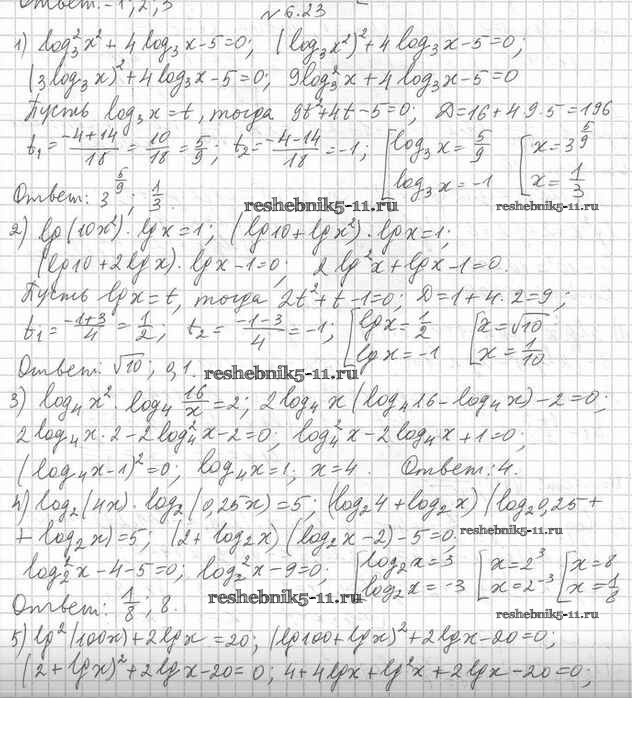 Ответ: -1; 2; 3
№ 6.23
1) log₃²x² + 4 log₃x - 5 = 0; (log₃x²)² + 4 log₃x - 5 = 0;
(3 log₃x)² + 4 log₃x - 5 = 0; 9 log₃²x + 4 log₃x - 5 = 0
Пусть log₃x = t, тогда 9t² + 4t - 5 = 0; D = 16 + 4·9·5 = 196
t₁ = (-4+14)/18 = 10/18 = 5/9; t₂ = (-4-14)/18 = -1; [log₃x = 5/9 [x = 3^(5/9)
log₃x = -1 x = 1/3
Ответ: 3^(5/9); 1/3.
reshebnik5-11.ru reshebnik5-11.ru
2) lg(10x²)·lgx = 1; (lg10 + lgx²)·lgx = 1;
(lg10 + 2lgx)·lgx - 1 = 0; 2lg²x + lgx - 1 = 0.
Пусть lgx = t, тогда 2t² + t - 1 = 0; D = 1 + 4·2 = 9;
t₁ = (-1+3)/4 = 1/2; t₂ = (-1-3)/4 = -1; [lgx = 1/2 [x = √10
lgx = -1 x = 1/10
Ответ: √10; 0,1.
reshebnik5-11.ru
3) log₄x²·log₄ 16/x = 2; 2log₄x(log₄16 - log₄x) - 2 = 0;
2log₄x·2 - 2log₄²x - 2 = 0; log₄²x - 2log₄x + 1 = 0;
(log₄x - 1)² = 0; log₄x = 1; x = 4. Ответ: 4.
4) log₂(4x)·log₂(0,25x) = 5; (log₂4 + log₂x)(log₂0,25 +
+ log₂x) = 5; (2 + log₂x)(log₂x - 2) - 5 = 0. reshebnik5-11.ru
log₂²x - 4 - 5 = 0; log₂²x - 9 = 0; [log₂x = 3 [x = 2³ [x = 8
log₂x = -3 x = 2⁻³ x = 1/8
Ответ: 1/8; 8.
reshebnik5-11.ru reshebnik5-11.ru
5) lg²(100x) + 2lgx = 20; (lg100 + lgx)² + 2lgx - 20 = 0;
(2 + lgx)² + 2lgx - 20 = 0; 4 + 4lgx + lg²x + 2lgx - 20 = 0;